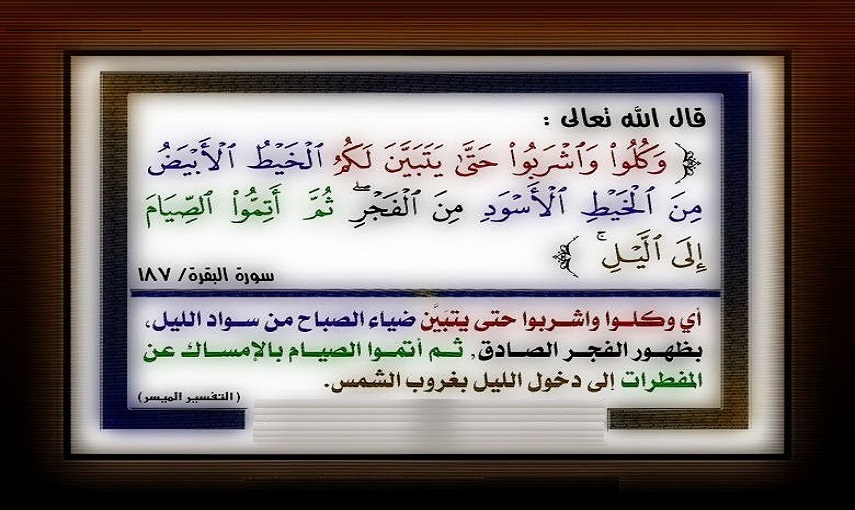 قال الله تعالى :
﴿ وَكُلُوا۟ وَٱشْرَبُوا۟ حَتَّىٰ يَتَبَيَّنَ لَكُمُ ٱلْخَيْطُ ٱلْأَبْيَضُ
مِنَ ٱلْخَيْطِ ٱلْأَسْوَدِ مِنَ ٱلْفَجْرِ ۖ ثُمَّ أَتِمُّوا۟ ٱلصِّيَامَ
إِلَى ٱلَّيْلِ ۚ ﴾
سورة البقرة/ ١٨٧
أي وكلوا واشربوا حتى يتبَيَّن ضياء الصباح من سواد الليل،
بظهور الفجر الصادق, ثم أتموا الصيام بالإمساك عن
المفطرات إلى دخول الليل بغروب الشمس.
(التفسير الميسر)